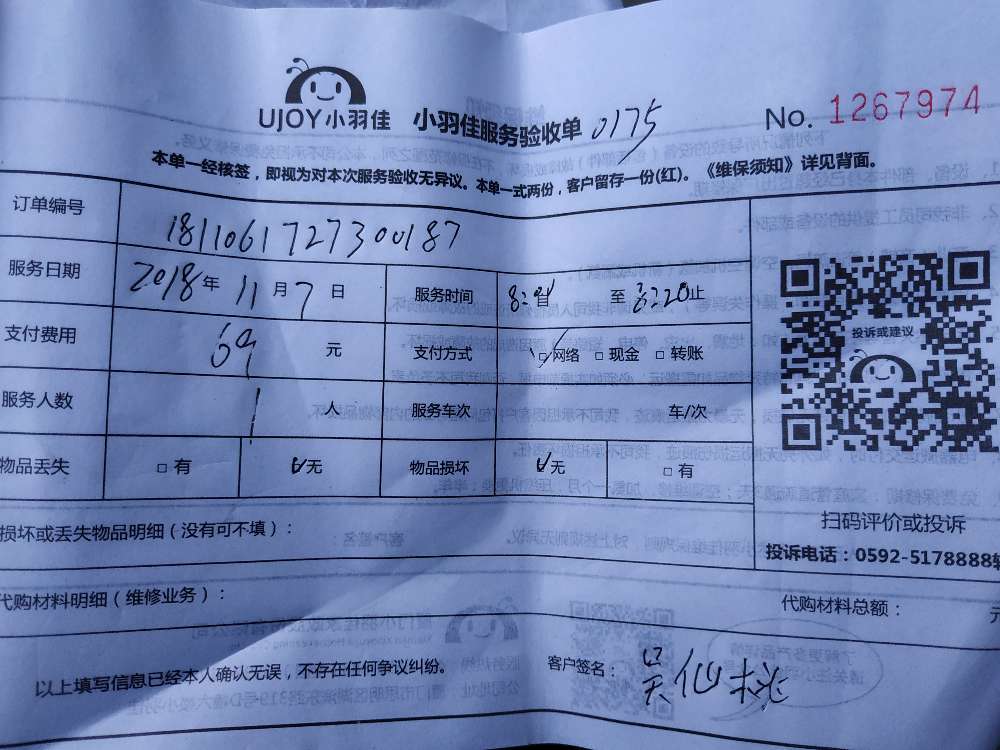 UJOY小羽佳 小羽佳服务验收单 0175 No. 1267974
本单一经核签，即视为对本次服务验收无异议。本单一式两份，客户留存一份(红)。《维保须知》详见背面。
订单编号 1811061727300187
服务日期 2018年11月7日 服务时间 至 止
支付费用 69 元 支付方式 □网络 □现金 □转账
服务人数 1 人 服务车次 车/次
物品丢失 □有 □无 物品损坏 □无 □有
投诉或建议
扫码评价或投诉
损坏或丢失物品明细（没有可不填）：
投诉电话：0592-5178888转
代购材料明细（维修业务）： 代购材料总额： 元
以上填写信息已经本人确认无误，不存在任何争议纠纷。 客户签名：吴仙桃